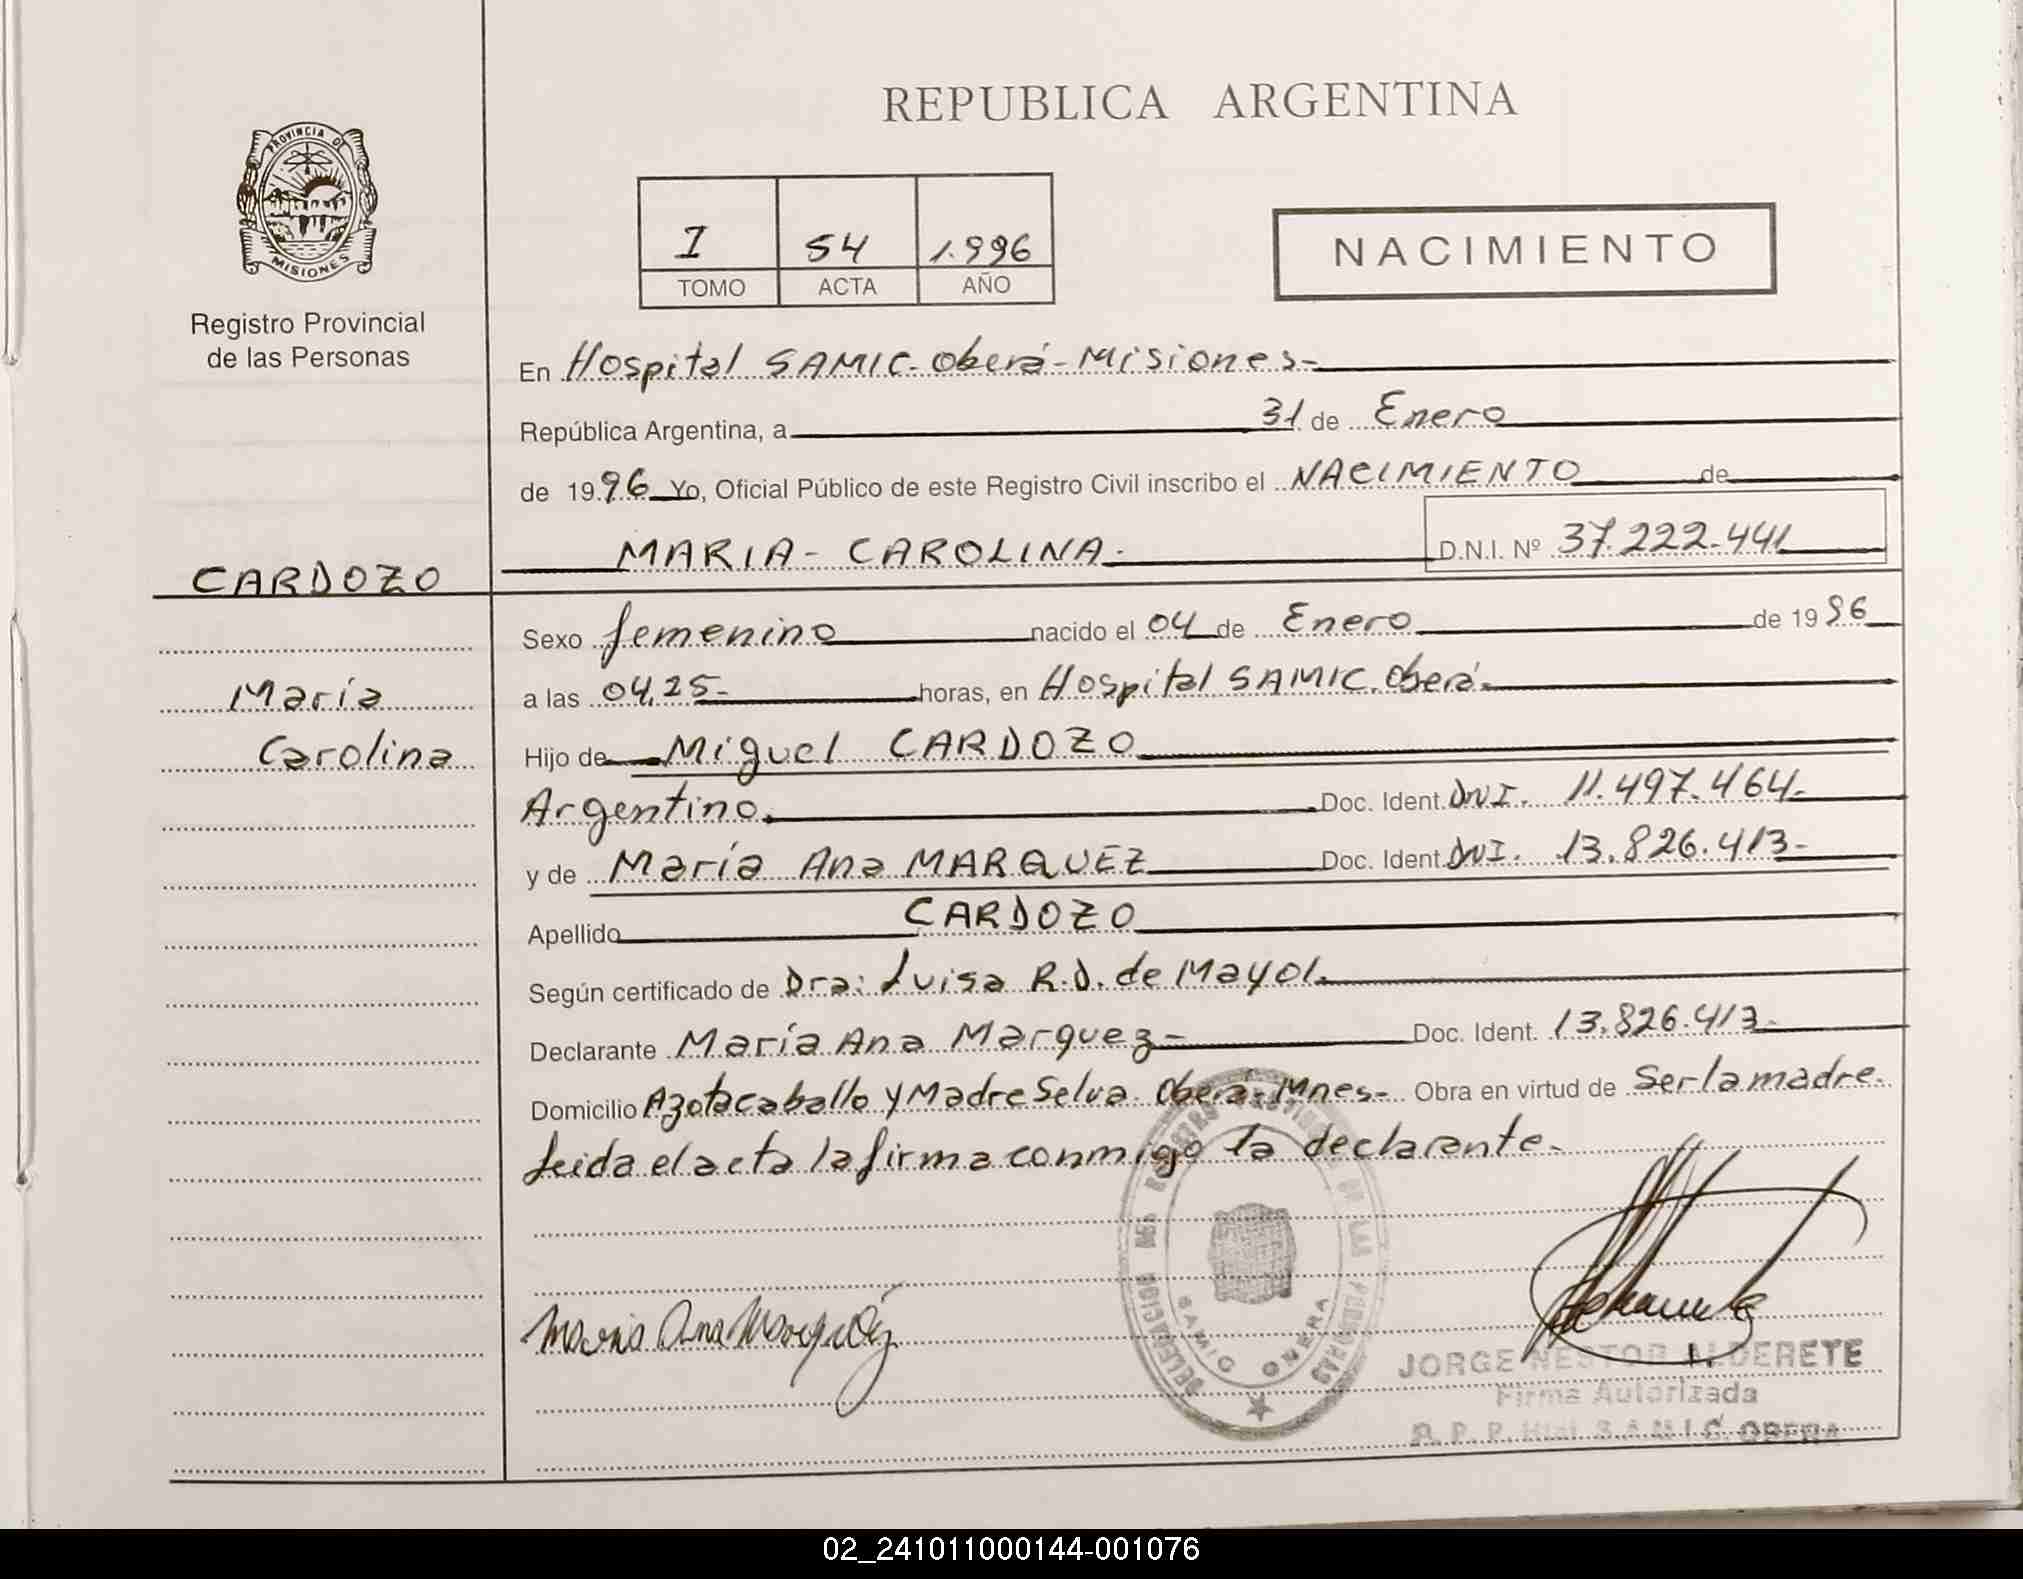 REPUBLICA ARGENTINA
PROVINCIA DE
MISIONES
Registro Provincial
de las Personas
I 54 1.996
TOMO ACTA AÑO
NACIMIENTO
En Hospital SAMIC. Oberá - Misiones-
República Argentina, a 31 de Enero
de 1996 Yo, Oficial Público de este Registro Civil inscribo el NACIMIENTO de
MARIA - CAROLINA. D.N.I. Nº 37.222.441
CARDOZO
María
Carolina
Sexo femenino nacido el 04 de Enero de 1996
a las 04,25- horas, en Hospital SAMIC. Oberá-
Hijo de Miguel CARDOZO
Argentino. Doc. Ident. DNI. 11.497.464-
y de María Ana MARQUEZ Doc. Ident. DNI. 13.826.413-
Apellido CARDOZO
Según certificado de Dra: Luisa R.D. de Mayol.
Declarante María Ana Marquez- Doc. Ident. 13.826.413-
Domicilio Azotacaballo y Madre Selva. Oberá-Mnes- Obra en virtud de Ser la madre.
Leida el acta la firma conmigo la declarante-
DELEGACION DEL REGISTRO PROVINCIAL DE LAS PERSONAS
SAMIC OBERA
Maria Ana Marquez
JORGE NESTOR ALDERETE
Firma Autorizada
R. P. P. Htal S.A.M.I.C. OBERA
02_241011000144-001076